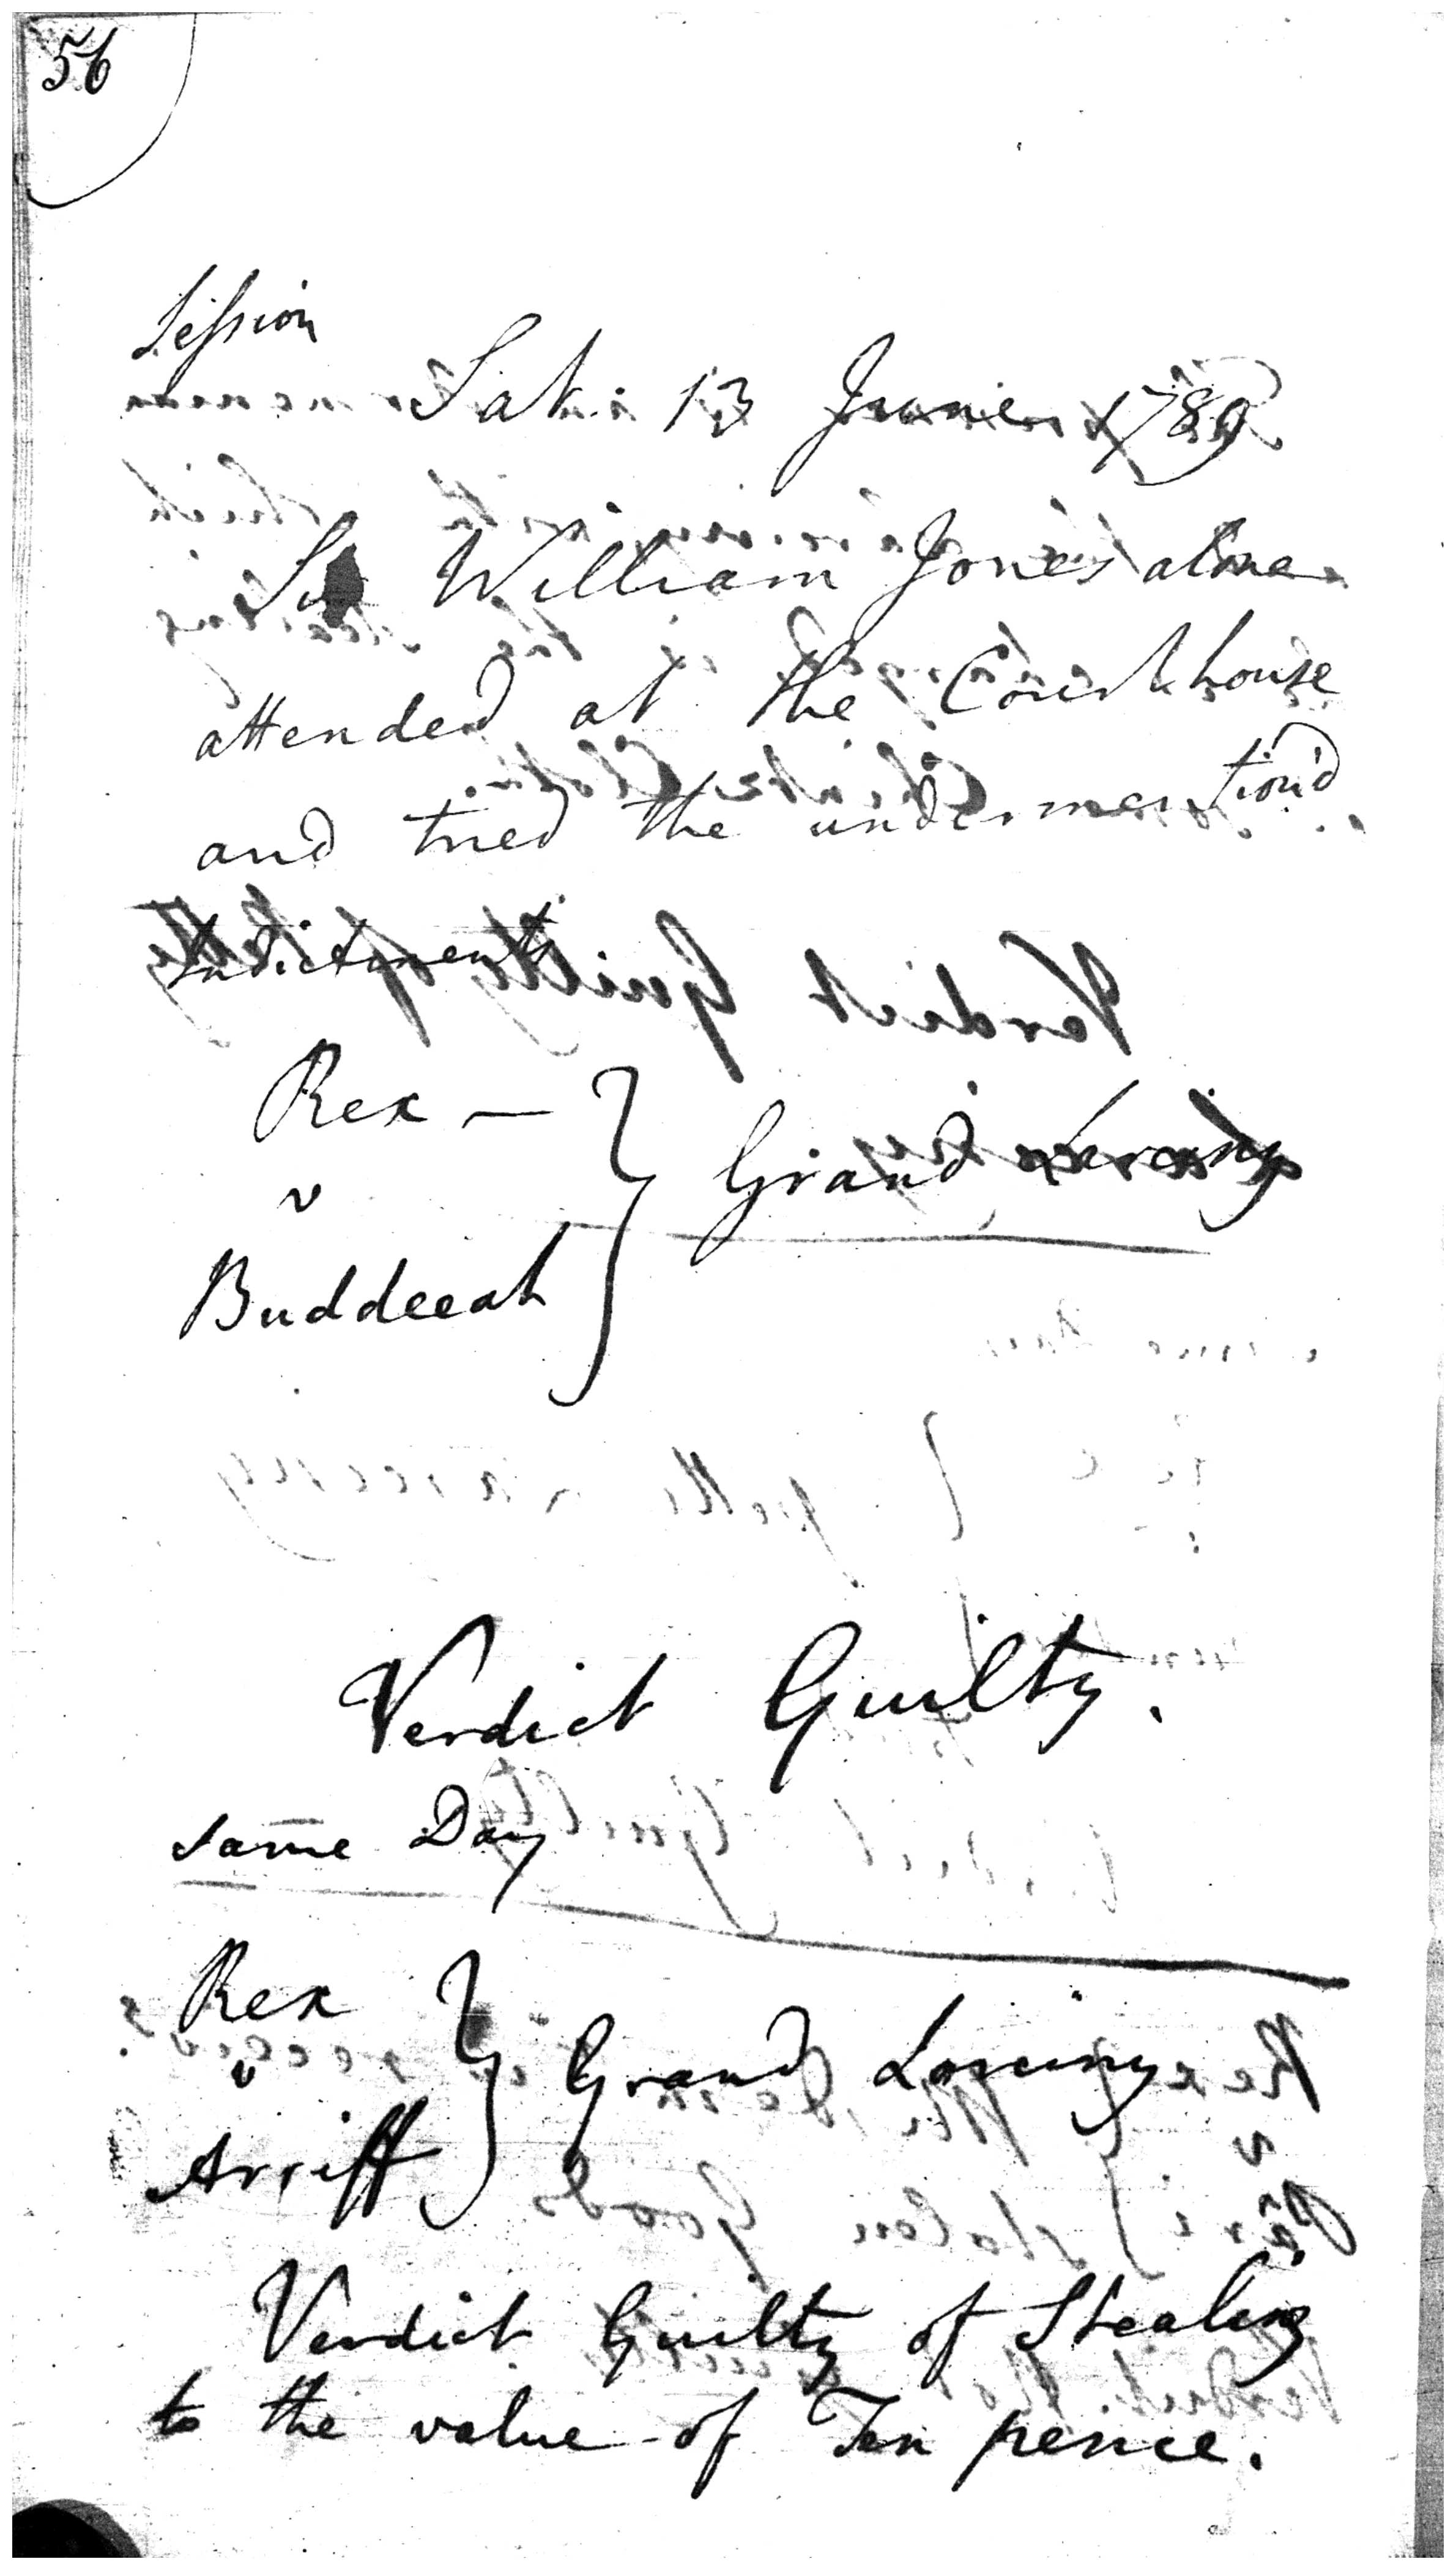 56
Session
Sat. 13 June 1789
Sir William Jones alone
attended at the Courthouse
and tried the undermention'd
Indictments
Rex — } Grand Larceny
v
Buddeeah
Verdict Guilty.
Same Day
Rex } Grand Larceny
v
Arriff
Verdict Guilty of Stealing
to the value of Ten pence.